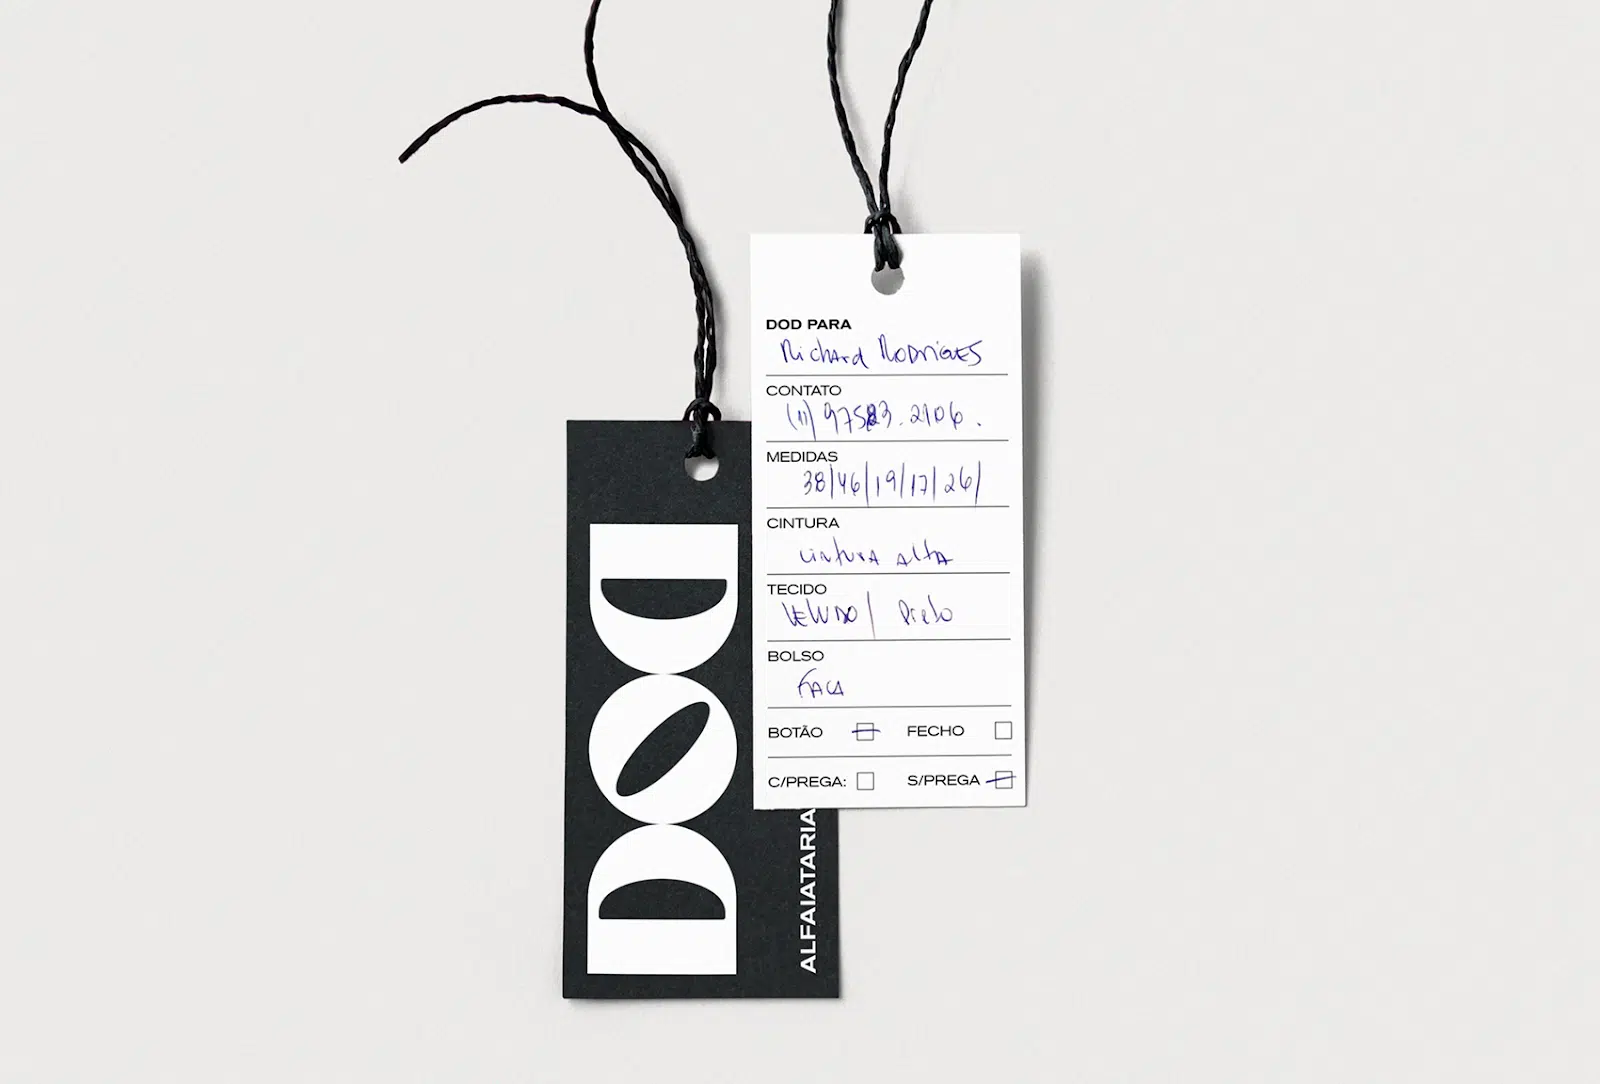 DOD
ALFAIATARIA
DOD PARA
Richard Rodrigues
CONTATO
(11) 97583.2106.
MEDIDAS
38/46/19/17/26/
CINTURA
cintura alta
TECIDO
VELUDO/ Preto
BOLSO
FACA
BOTÃO FECHO
C/PREGA: S/PREGA